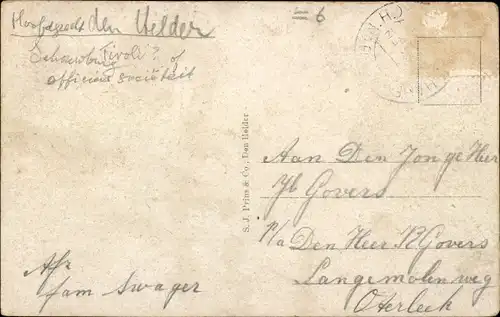 Hoofdgracht den Helder
= 6
Schouwburg Tivoli? of
officiers sociëteit
DEN H
S. J. Prins & Co., Den Helder
Aan Den Jonge Heer
Jb Govers
p/a Den Heer R Govers
Langemolenweg
Oterleek
Afz
fam Swager